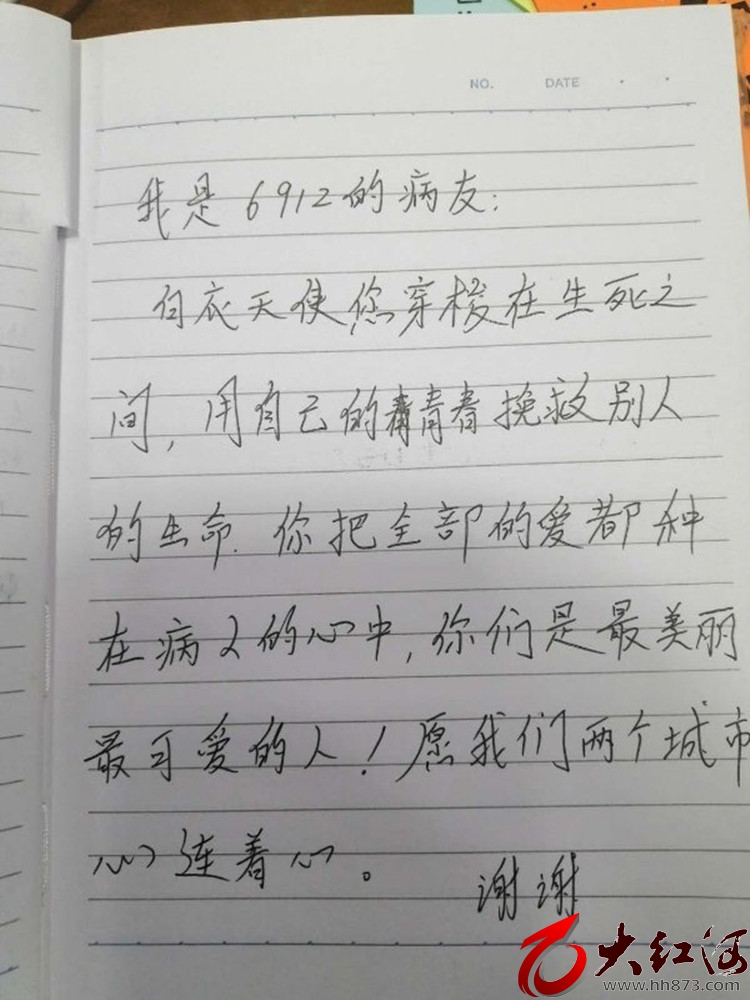 NO. DATE
我是6912的病友:
白衣天使您穿梭在生死之
间,用自己的青春挽救别人
的生命.你把全部的爱都种
在病人的心中,你们是最美丽
最可爱的人!愿我们两个城市
心连着心。
谢谢
大红河
www.hh873.com